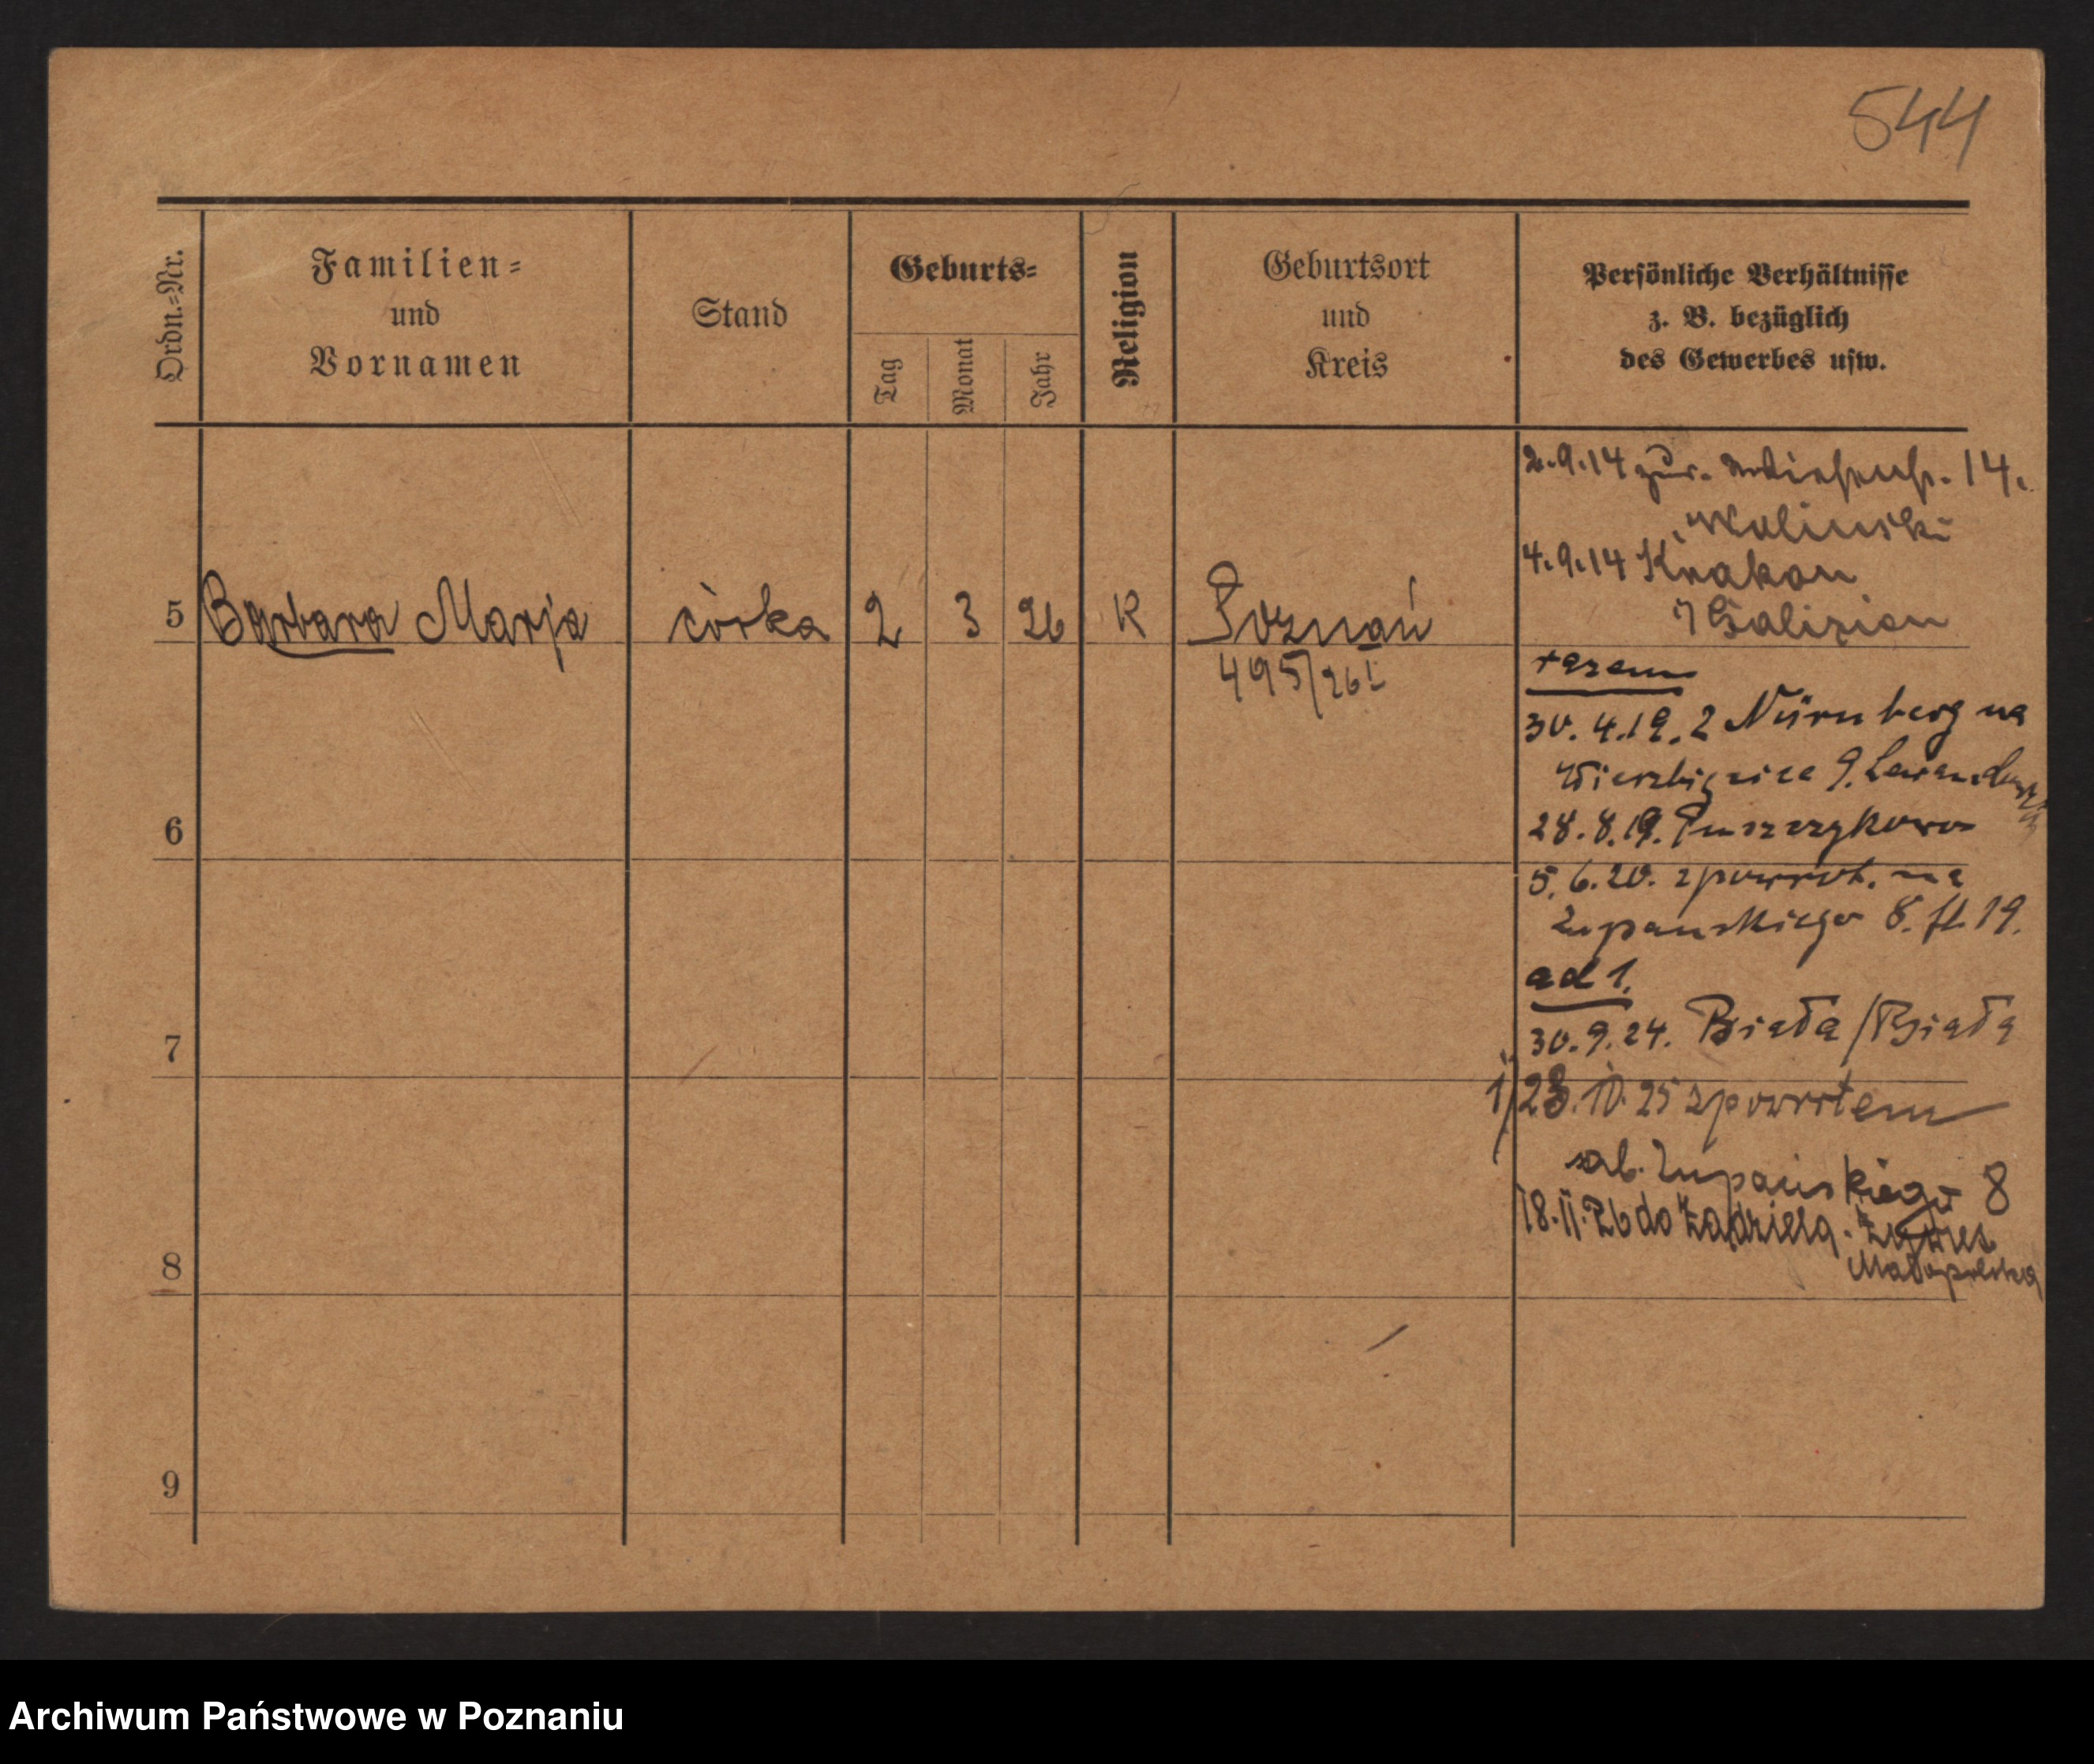 544
Ordn.=Nr.
Familien=
und
Vornamen
Stand
Geburts=
Tag
Monat
Jahr
Religion
Geburtsort
und
Kreis
Persönliche Verhältnisse
z. B. bezüglich
des Gewerbes usw.
2.9.14 zur. 14.
Walinski
4.9.14 Krakau
Galizien
5 Barbara Marja córka 2 3 26 K Poznań
495/26 I
razem
30.4.19. z Nürnberg na
Wierzbięcice 9.
28.8.19. Puszczykowo
6
5.6.20. zpowrot. na
Zupanskiego 8. 19.
ad 1.
30.9.24. Biała/Biała
7
1) 23.10.25 zpowrotem
Zupańskiego 8
18.II.26 do
Małopolska
8
9
Archiwum Państwowe w Poznaniu